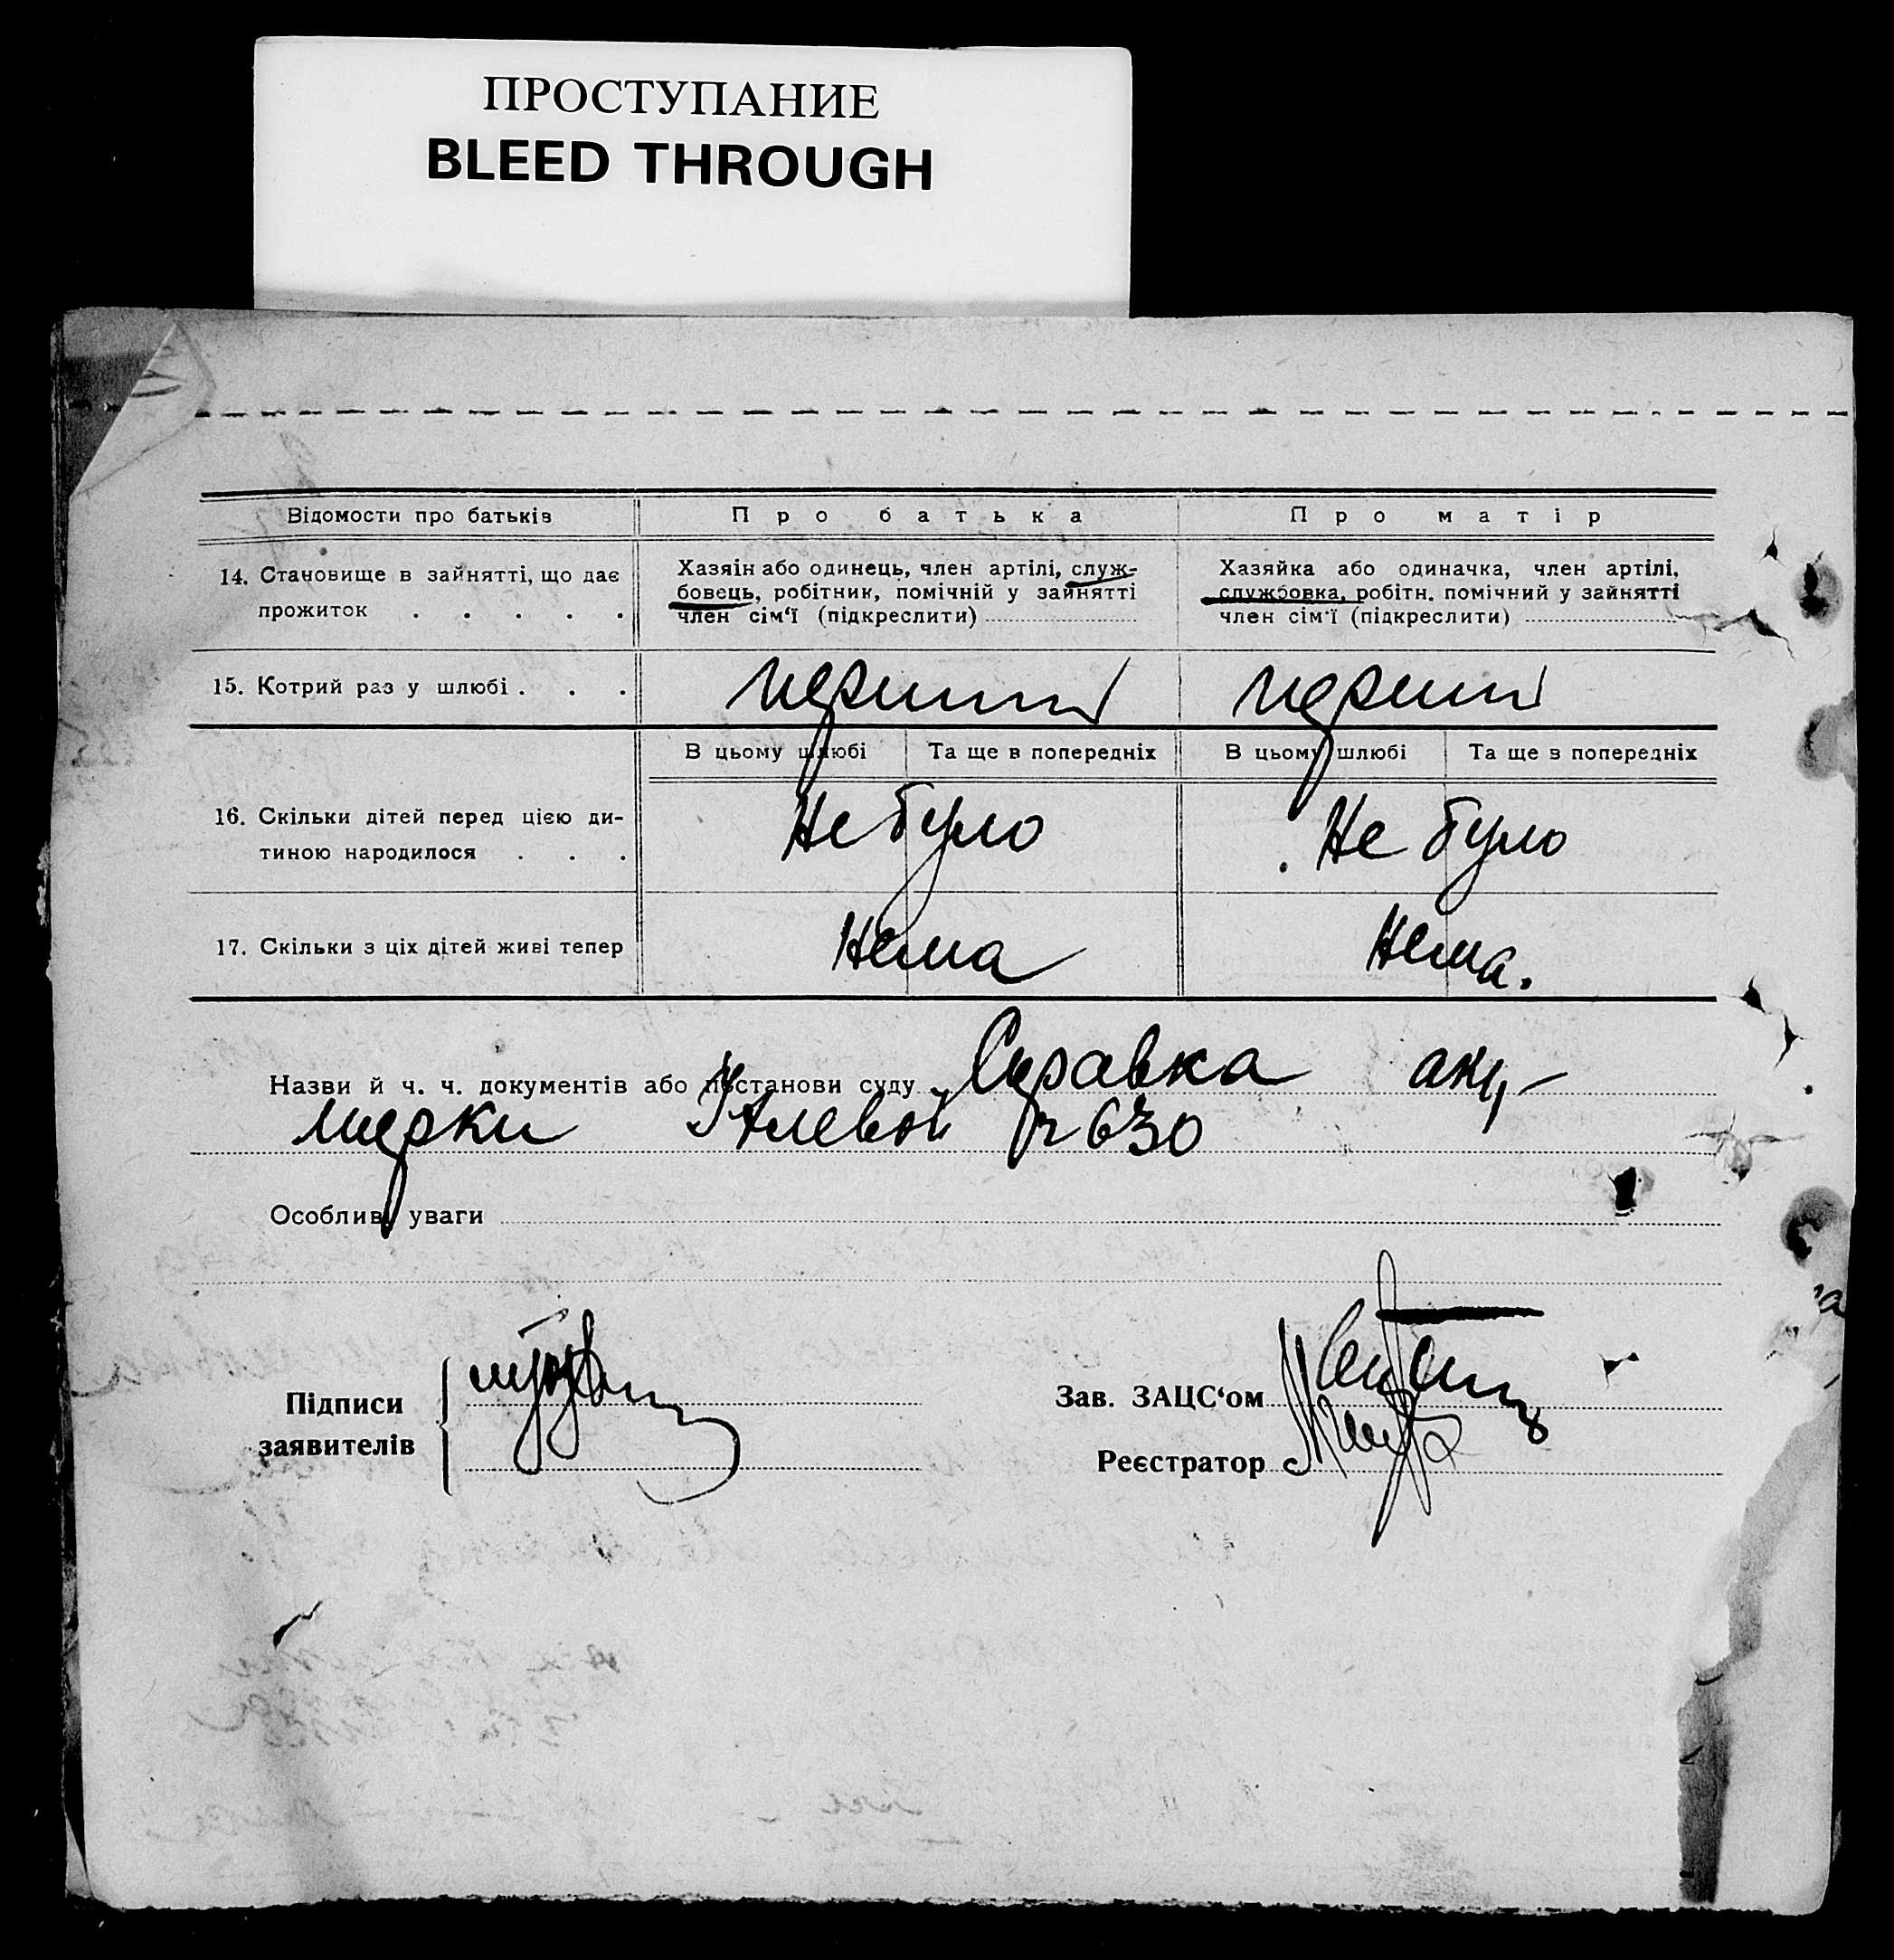 ПРОСТУПАНИЕ
BLEED THROUGH
Відомости про батьків
Про батька
Про матір
14. Становище в зайнятті, що дає
прожиток . . . . .
Хазяін або одинець, член артілі, служ-
бовець, робітник, помічній у зайнятті
член сім‘ї (підкреслити)
Хазяйка або одиначка, член артілі,
службовка, робітн. помічний у зайнятті
член сім‘ї (підкреслити)
15. Котрий раз у шлюбі . . .
перший
перший
В цьому шлюбі
Та ще в попередніх
В цьому шлюбі
Та ще в попередніх
16. Скільки дітей перед цією ди-
тиною народилося . . .
Не було
Не було
17. Скільки з ціх дітей живі тепер
Нема
Нема.
Назви й ч. ч. документів або постанови суду Справка аку-
шерки №630
Особливі уваги
Підписи
заявителів
Зав. ЗАЦС‘ом
Реєстратор